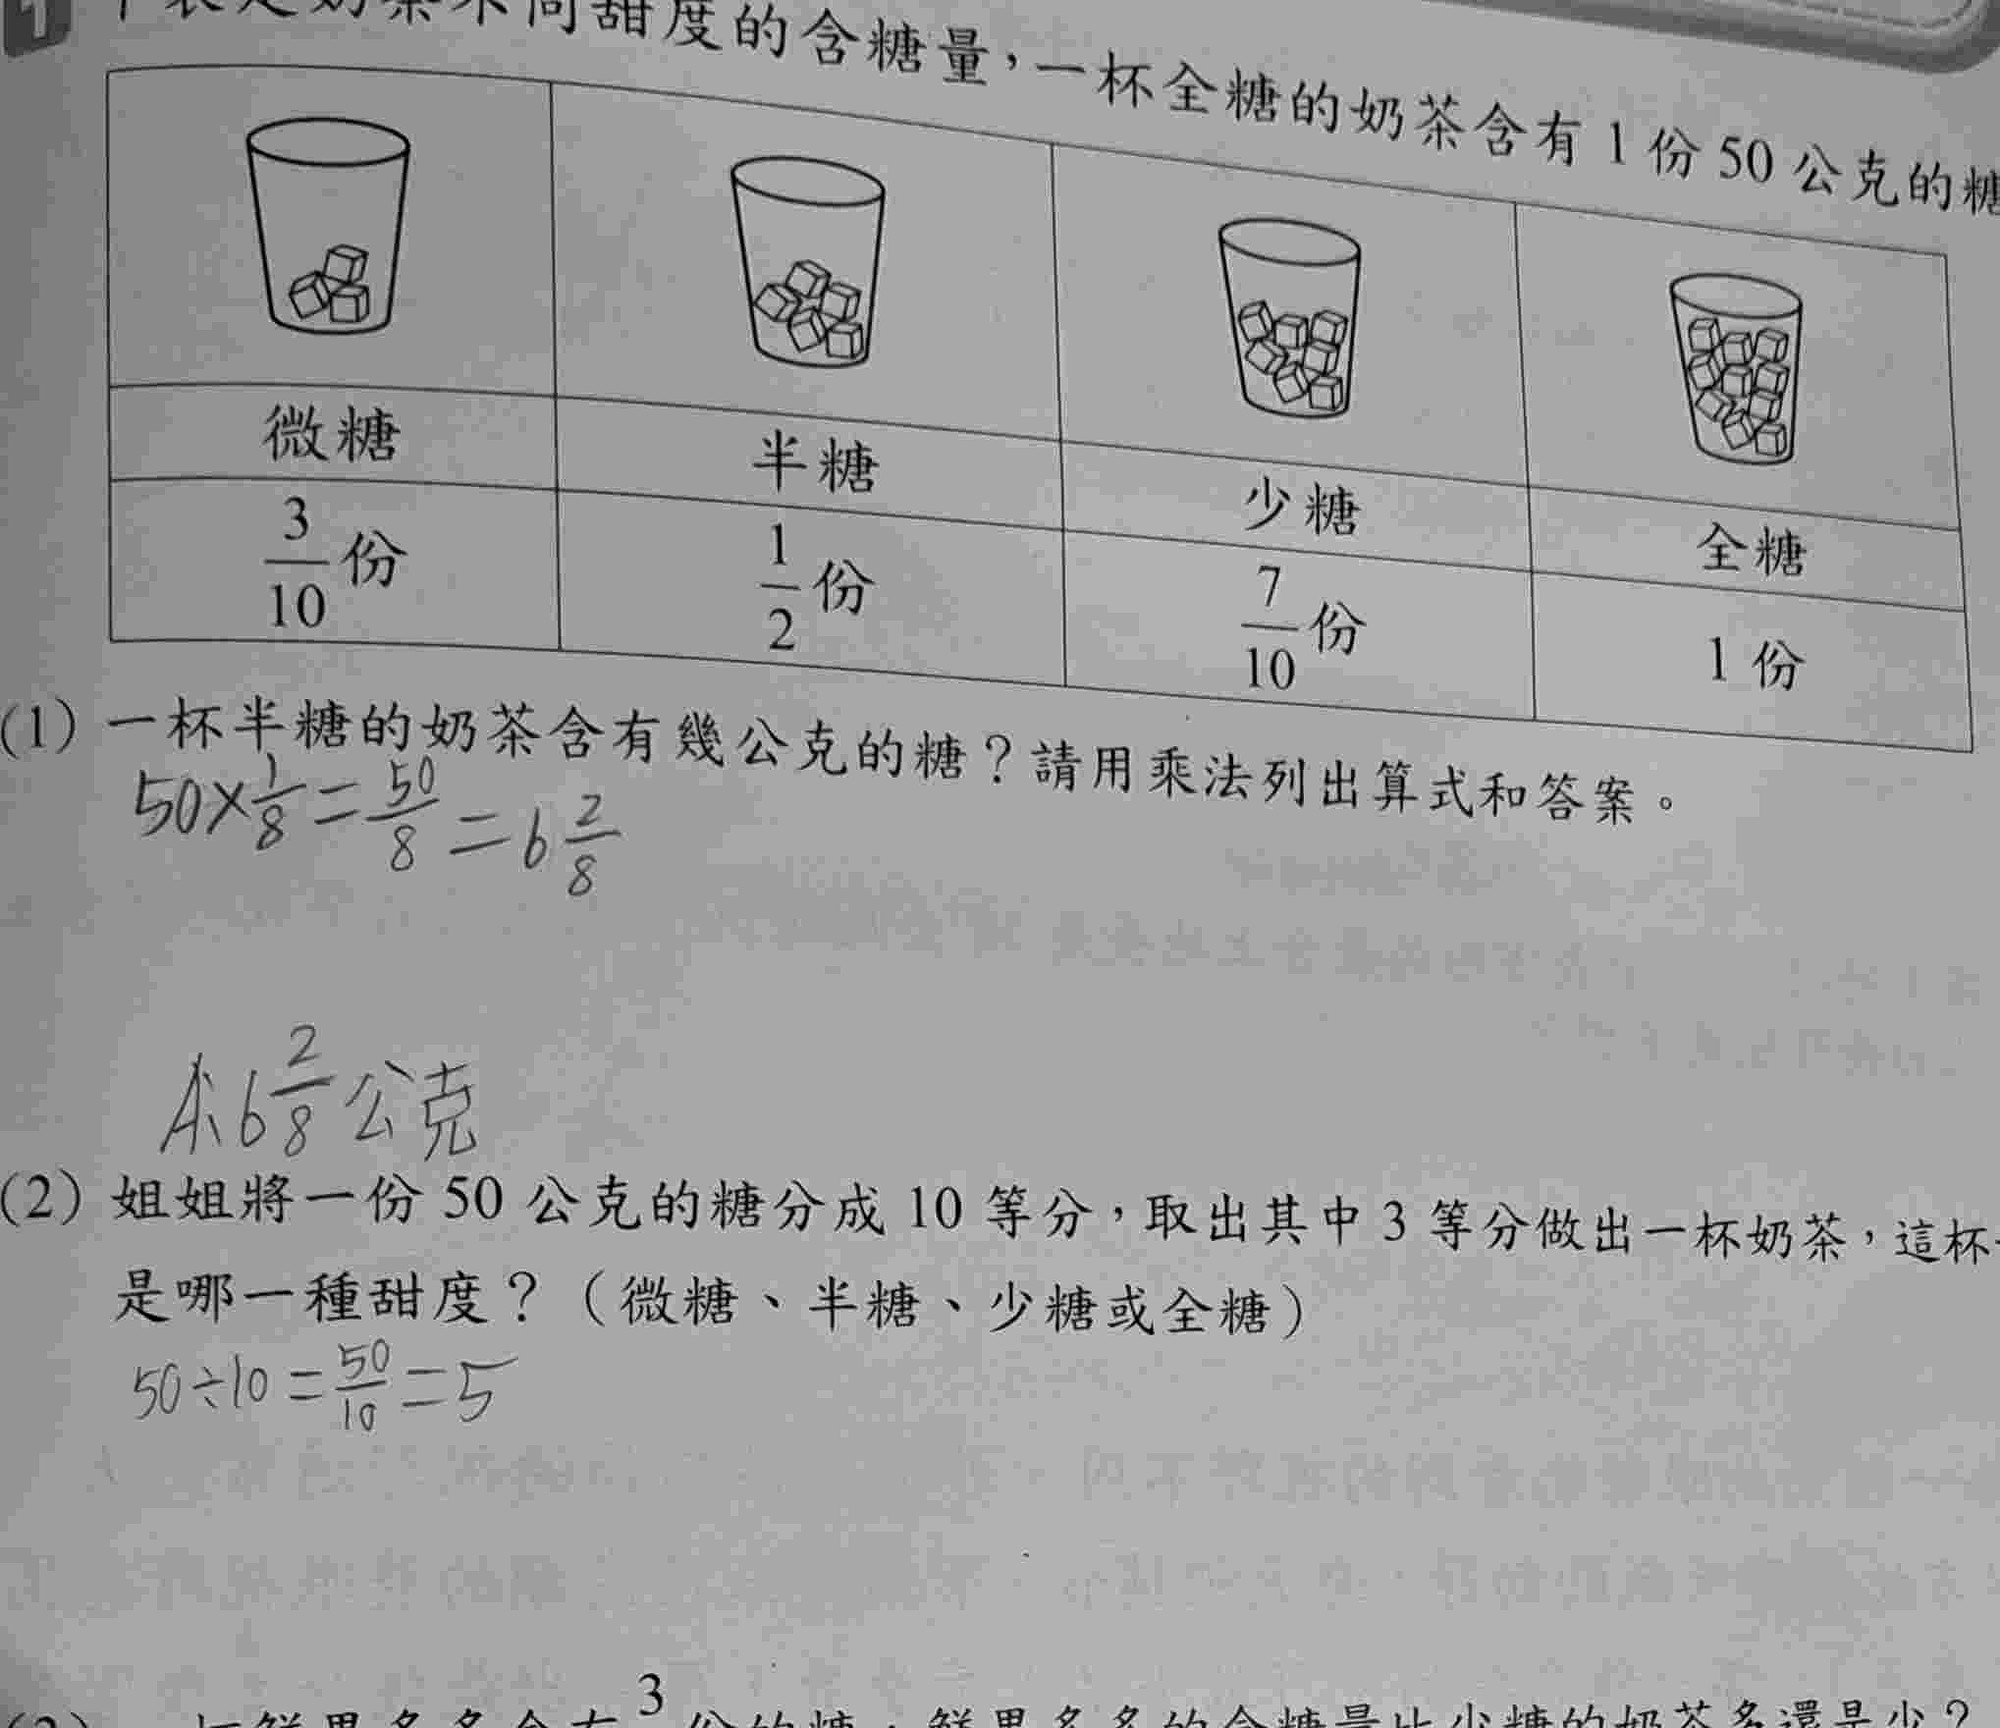 1 下表是奶茶不同甜度的含糖量，一杯全糖的奶茶含有 1 份 50 公克的糖
微糖 半糖 少糖 全糖
3/10 份 1/2 份 7/10 份 1 份
(1) 一杯半糖的奶茶含有幾公克的糖？請用乘法列出算式和答案。
50×1/8=50/8=6 2/8
A:6 2/8 公克
(2) 姐姐將一份 50 公克的糖分成 10 等分，取出其中 3 等分做出一杯奶茶，這杯
是哪一種甜度？（微糖、半糖、少糖或全糖）
50÷10=50/10=5
鮮果多多含有 3 份的糖，鮮果多多的含糖量比少糖的奶茶多還是少？